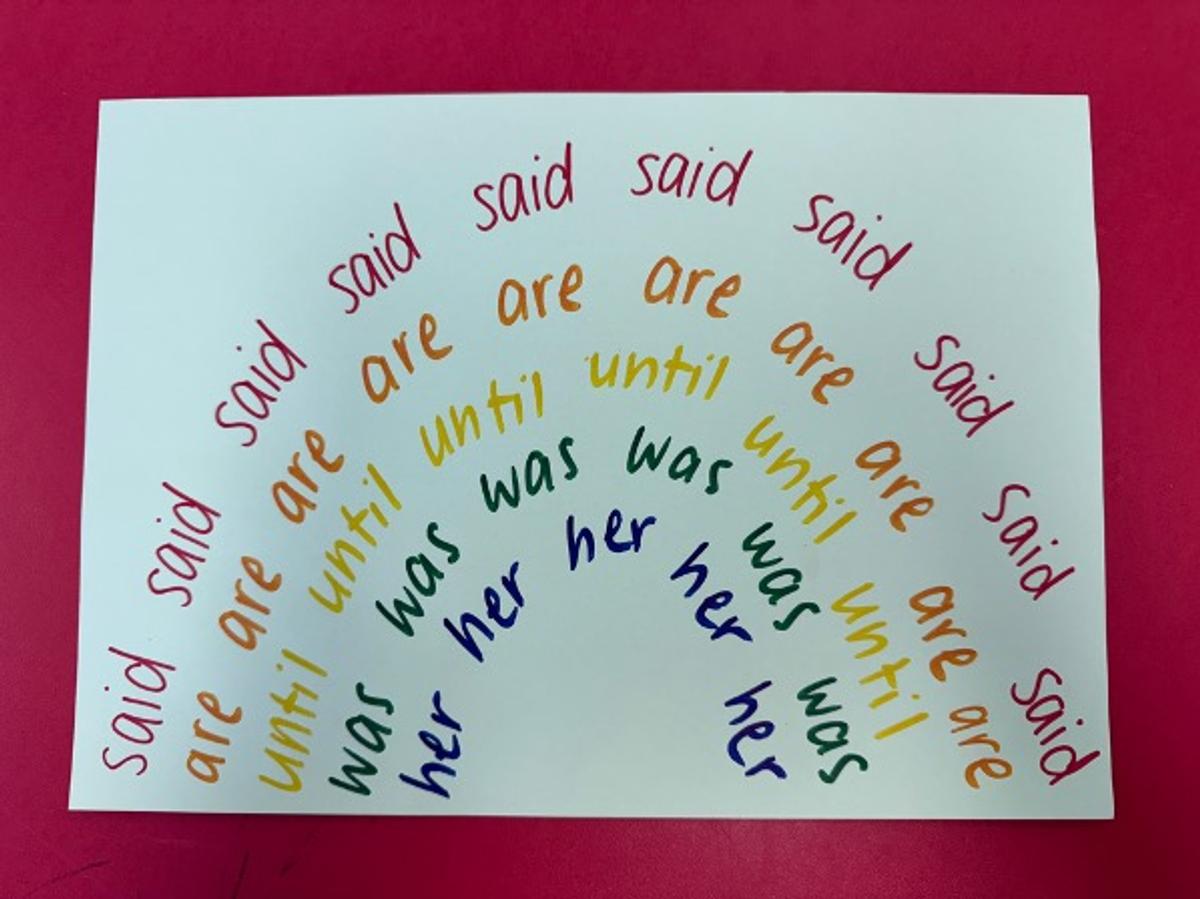 said said said said said said said said said said
are are are are are are are are are are
until until until until until until
was was was was was was
her her her her her